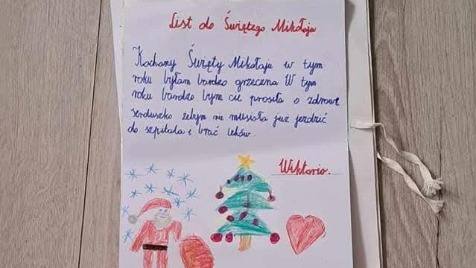 List do Świętego Mikołaja
Kochany Święty Mikołaju w tym
roku byłam bardzo grzeczna W tym
roku bardzo bym cie prosiła o zdrowe
serduszko żebym nie musiała już jeździć
do szpitala i brać leków.
Wiktoria.